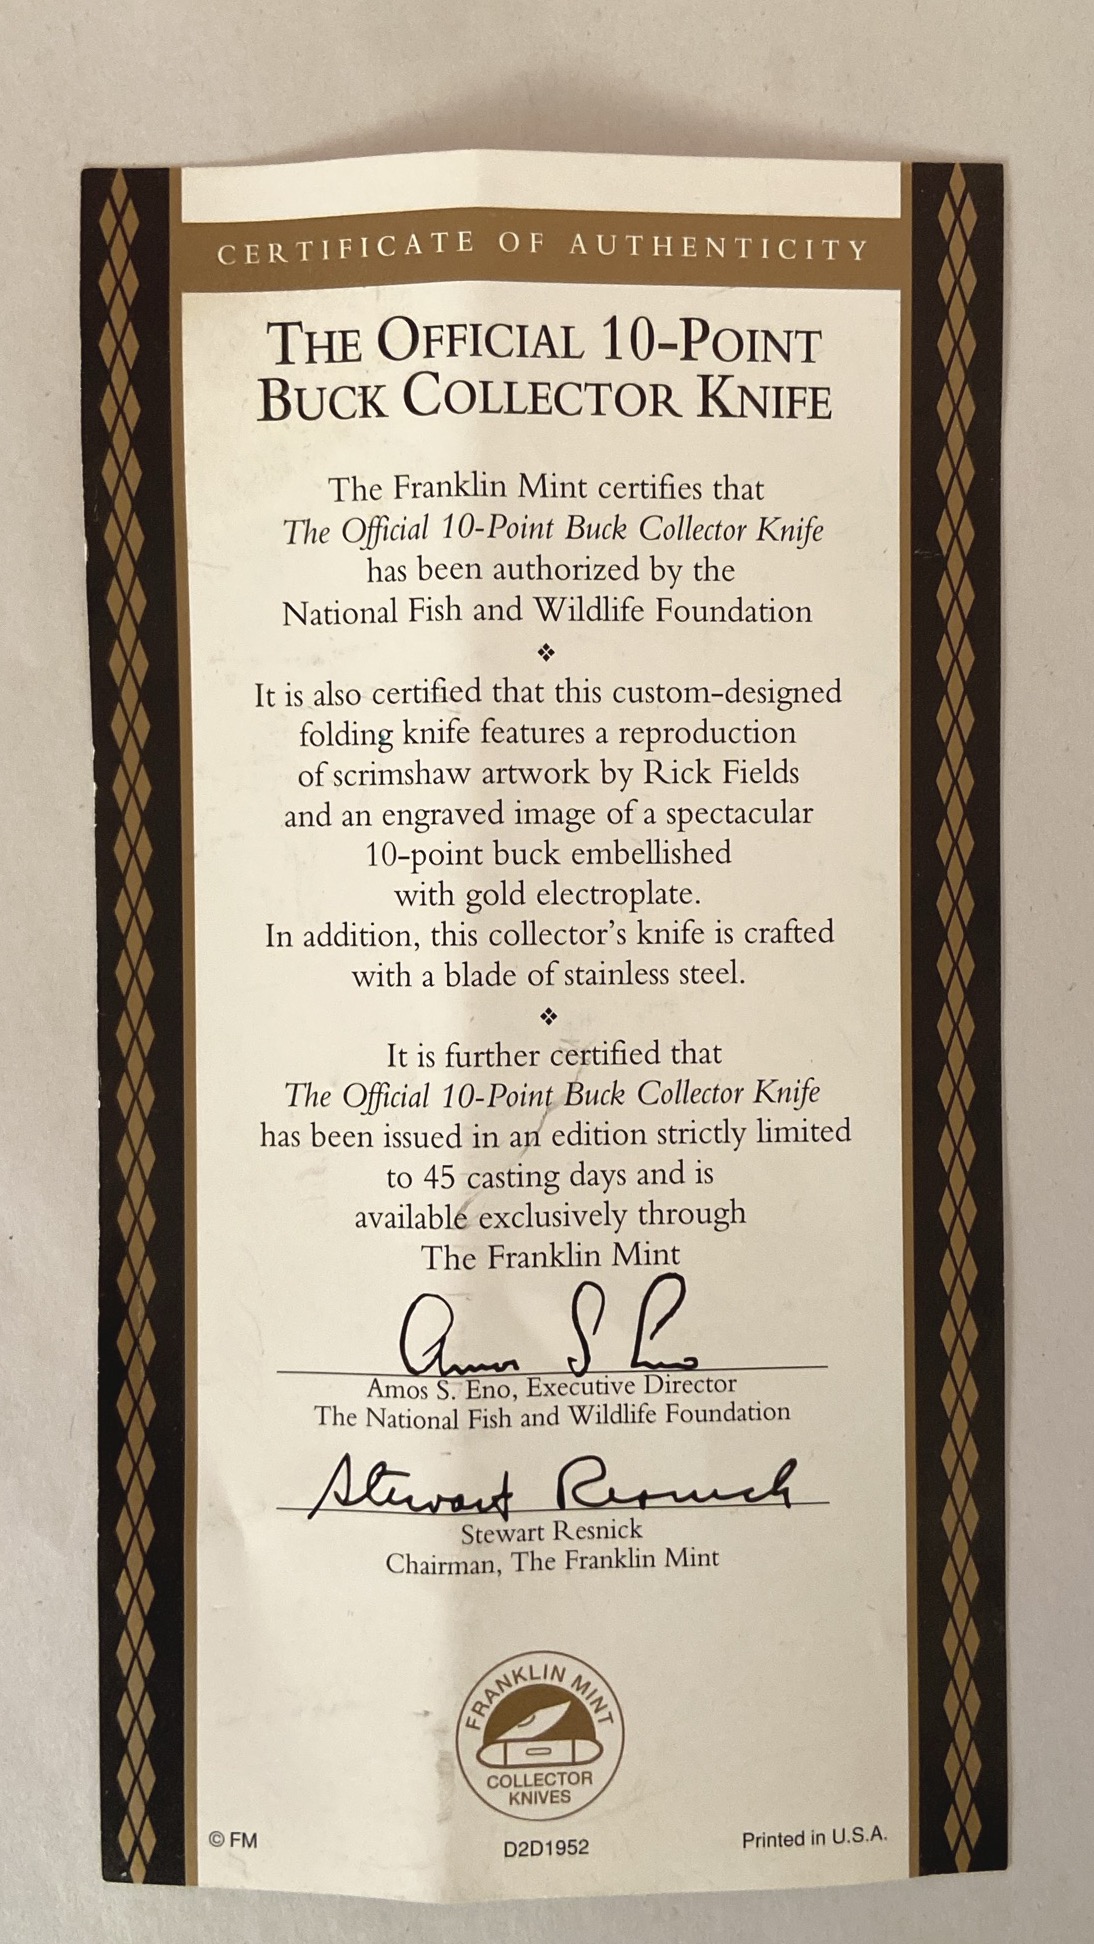 CERTIFICATE OF AUTHENTICITY
THE OFFICIAL 10-POINT
BUCK COLLECTOR KNIFE
The Franklin Mint certifies that
The Official 10-Point Buck Collector Knife
has been authorized by the
National Fish and Wildlife Foundation
❖
It is also certified that this custom-designed
folding knife features a reproduction
of scrimshaw artwork by Rick Fields
and an engraved image of a spectacular
10-point buck embellished
with gold electroplate.
In addition, this collector's knife is crafted
with a blade of stainless steel.
❖
It is further certified that
The Official 10-Point Buck Collector Knife
has been issued in an edition strictly limited
to 45 casting days and is
available exclusively through
The Franklin Mint
Amos S Eno
Amos S. Eno, Executive Director
The National Fish and Wildlife Foundation
Stewart Resnick
Stewart Resnick
Chairman, The Franklin Mint
FRANKLIN MINT
COLLECTOR
KNIVES
© FM
D2D1952
Printed in U.S.A.